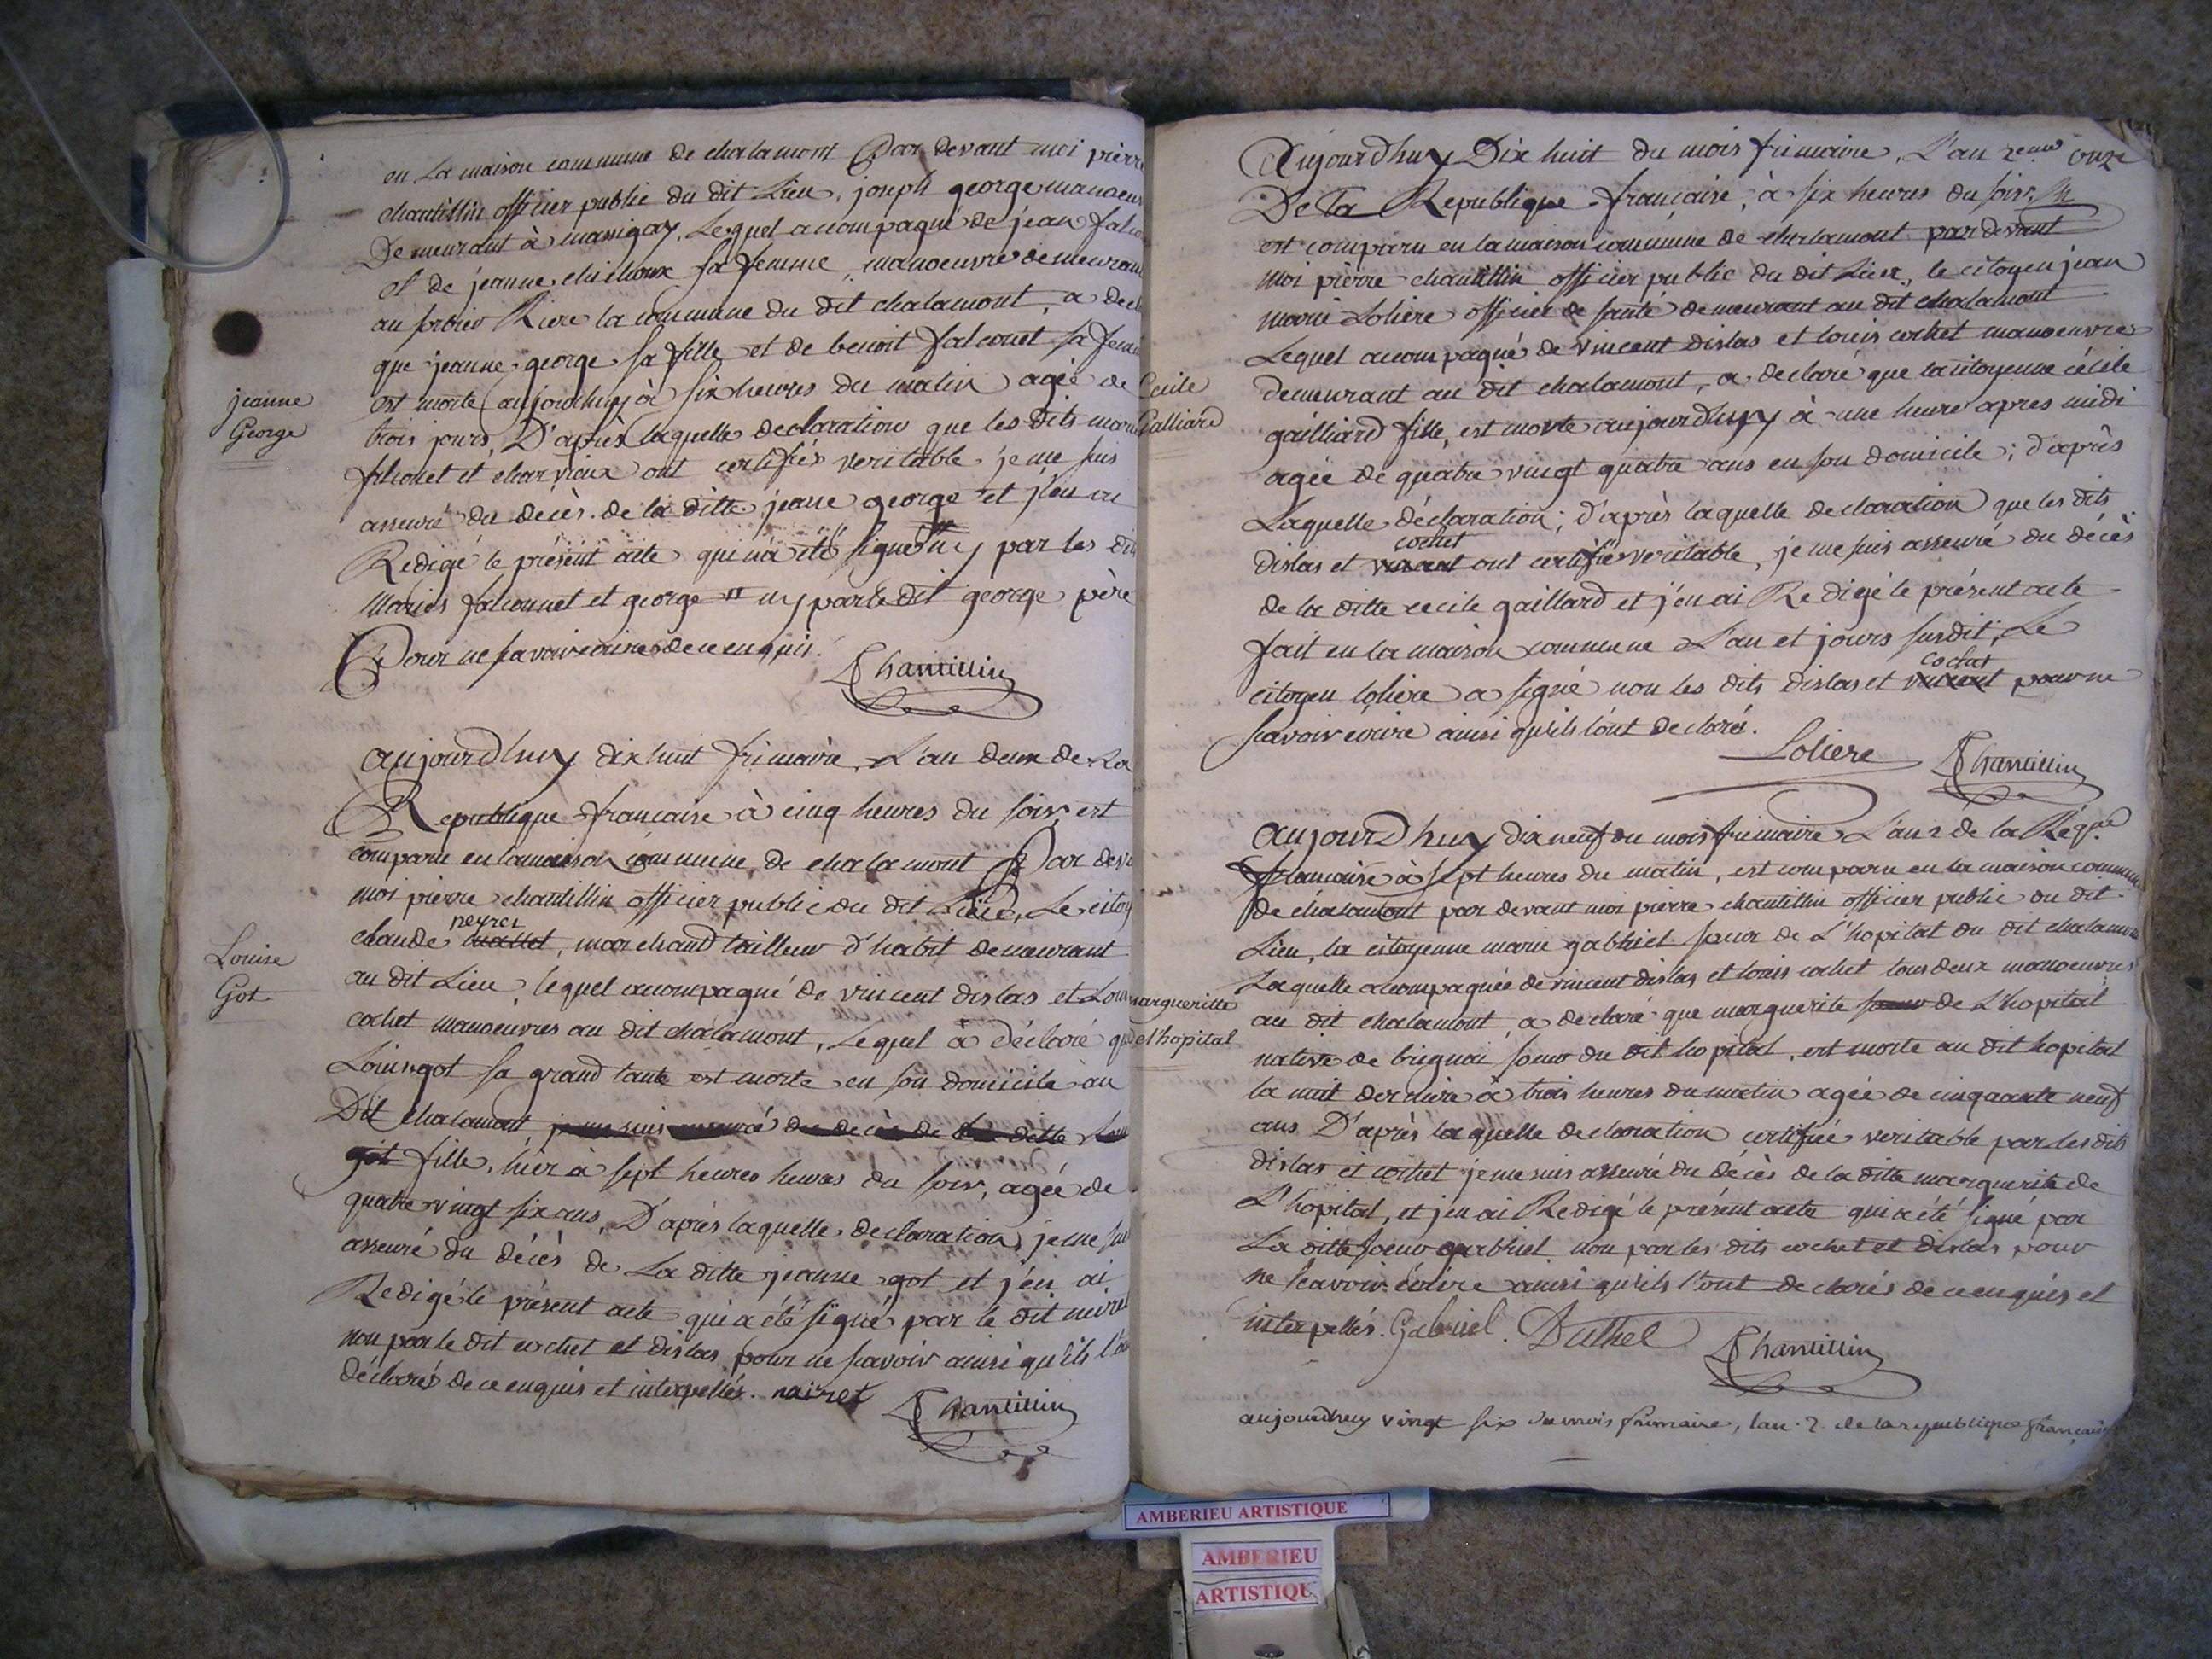 en La maison commune de chalamont Par devant moi pierre
chantillin officier public du dit Lieu, joseph george manoeuv
Demeurant à massigay, Lequel acompagné de jean falco
et de jeanne sa femme, manoeuvre demeurant
au Riere la commune du dit chalamont, a decl
que jeanne george sa fille et de benoit falconet sa fem
est morte aujourdhuy à six heures du matin agée de
trois jours, D'après laquelle declaration que les dits mari
falconet et charvieux ont certifiés veritable je me suis
asseuré du décès de la ditte jeanne george et j'en ai
Redigé le présent acte qui n'a été signé ny par les dit
Maries falconnet et george ny par le Dit george père
Pour ne savoir ecrire de ce enquis.
Chantillin
jeanne
George
aujourdhuy dix huit frimaire, L'an deux de La
Republique francaise à cinq heures du soir, est
comparu en la maison commune, de chalamont Par deva
moi pierre chantillin officier public du dit Lieu, Le citoy
neyret
claude , marchand tailleur d'habit demeurant
au dit Lieu, lequel acompagné de vincent dislas et Loui
cochet manoeuvres au dit chalamont, Lequel à déclaré que
Louise got sa grand tante est morte en son domicile au
Dit chalamont je me suis asseuré du décès de la ditte Lou
got fille, hier à sept heures heures du soir, agée de
quatre vingt six ans, D'après laquelle declaration, je me sui
asseuré du décès de La ditte jeanne got et j'en ai
Redigé le présent acte qui a été signé par le dit neiret
non par le dit cochet et dislas pour ne scavoir ainsi qu'ils l'on
déclarés de ce enquis et interpellés. nairet
Chantillin
Louise
Got
Aujourdhuy Dix huit du mois frimaire, L'an 2eme onze
De La Republique francaise, à six heures du soir,
est comparu en la maison commune de chalamont par devant
Moi pierre chantillin officier public du dit Lieu, le citoyen jean
marie Loliere officier de santé demeurant au dit chalamont
Lequel acompagné de vincent dislas et louis cochet manoeuvres
demeurant au dit chalamont, a declaré que la citoyenne cécile
gailliard fille, est morte aujourdhuy à une heure apres midi
agée de quatre vingt quatre ans en son domicile; d'après
Laquelle déclaration; d'après laquelle declaration que les dits
cochet
dislas et vincent ont certifié veritable, je me suis asseuré du décès
de la ditte cecile gaillard et j'en ai Redigé le présent acte
fait en la maison commune L'an et jours susdit, Le
cochet
citoyen loliere a signé non les dits dislas et vincent pour ne
scavoir écrire ainsi qu'ils l'ont declaré.
Loliere Chantillin
Cecile
Galliard
aujourdhuy dix neuf du mois frimaire L'an 2 de la Rép.que
francaise à sept heures du matin, est comparu en la maison commune
de chalamont par devant moi pierre chantillin officier public du dit
Lieu, la citoyenne marie gabriel soeur de L'hopital du dit chalamon
Laquelle acompagnée de vincent dislas et louis cochet tous deux manoeuvres
au dit chalamont, a declaré que marguerite soeur de L'hopital
native de brignai soeur du dit hopital, est morte au dit hopital
la nuit derniere à trois heures du matin agée de cinquante neuf
ans D'après laquelle declaration certifiée veritable par les dits
dislas et cochet je me suis asseuré du décès de la ditte marguerite de
L'hopital, et j'en ai Redigé le présent acte qui a été signé par
La ditte soeur gabriel non par les dits cochet et dislas pour
ne scavoir écrire ainsi qu'ils l'ont declarés de ce enquis et
interpellés. Gabriel. Duthel Chantillin
margueritte
de l'hopital
aujourdhuy vingt six du mois frimaire, lan 2 de la republique française
AMBERIEU ARTISTIQUE
AMBERIEU
ARTISTIQU